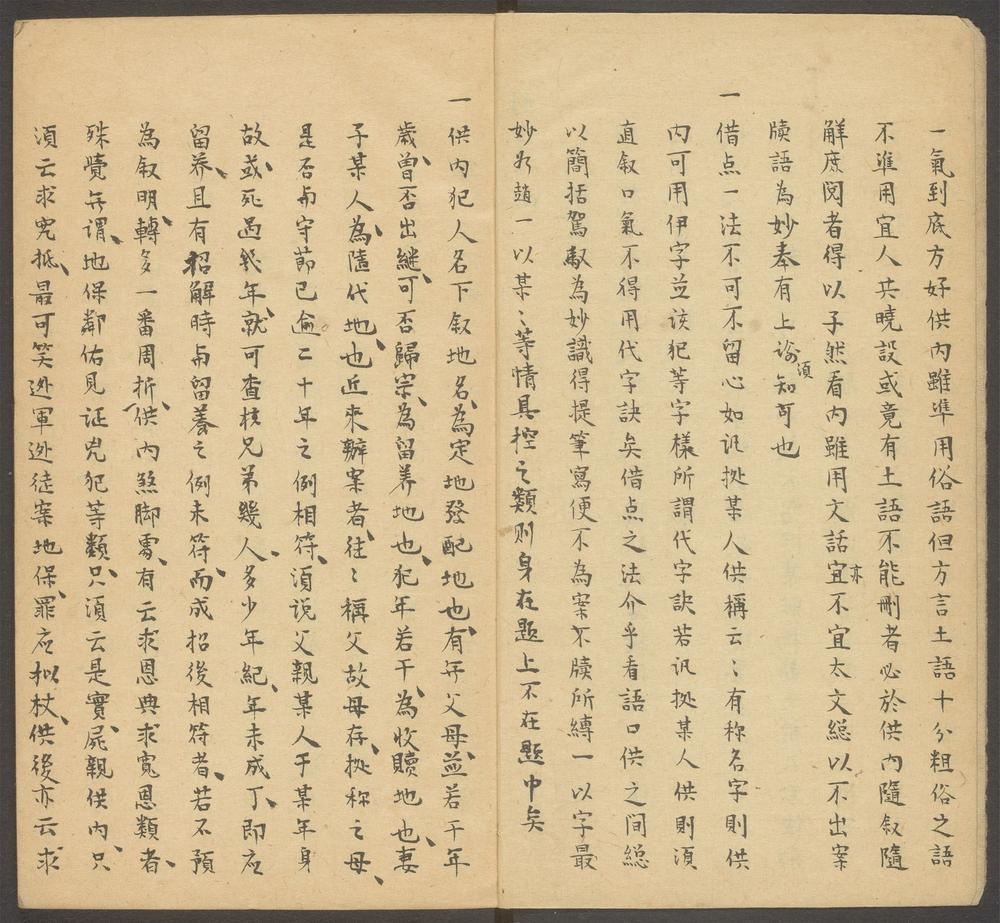 一氣到底方好供內雖準用俗語但方言土語十分粗俗之語
不準用宜人共曉設或竟有土語不能刪者必於供內隨叙隨
觧庶閱者得以了然看內雖用文話宜亦不宜太文縂以不出案
牘語為妙奉有上諭須知可也
一借点一法不可不留心如訊㨿某人供稱云〻有称名字則供
內可用伊字並該犯等字樣所謂代字訣若訊㨿某人供則須
直叙口氣不得用代字訣矣借点之法介乎看語口供之间縂
以簡括駕馭為妙識得提筆寫便不為案牘所縛一以字最
妙如趙一以某〻等情具控之類則身在題上不在題中矣
一供内犯人名下叙地名為定地發配地也有無父母並若干年
歲曾否出継可否歸宗為留养地也犯年若干為收贖地也妻
子某人為隨代地也近來辦案者往〻稱父故母存㨿称之母
是否属守節已逾二十年之例相符須説父親某人于某年身
故或死過幾年就可查核兄弟幾人多少年紀年未成丁即应
留养且有招解時与留養之例未符而成招後相符者若不預
為叙明轉多一番周折供内煞脚處有云求恩典求寬恩類者
殊覺無謂地保鄰佑見证兇犯等類只須云是實屍親供內只
須云求究抵最可笑迯軍迯徒案地保罪应拟杖供後亦云求